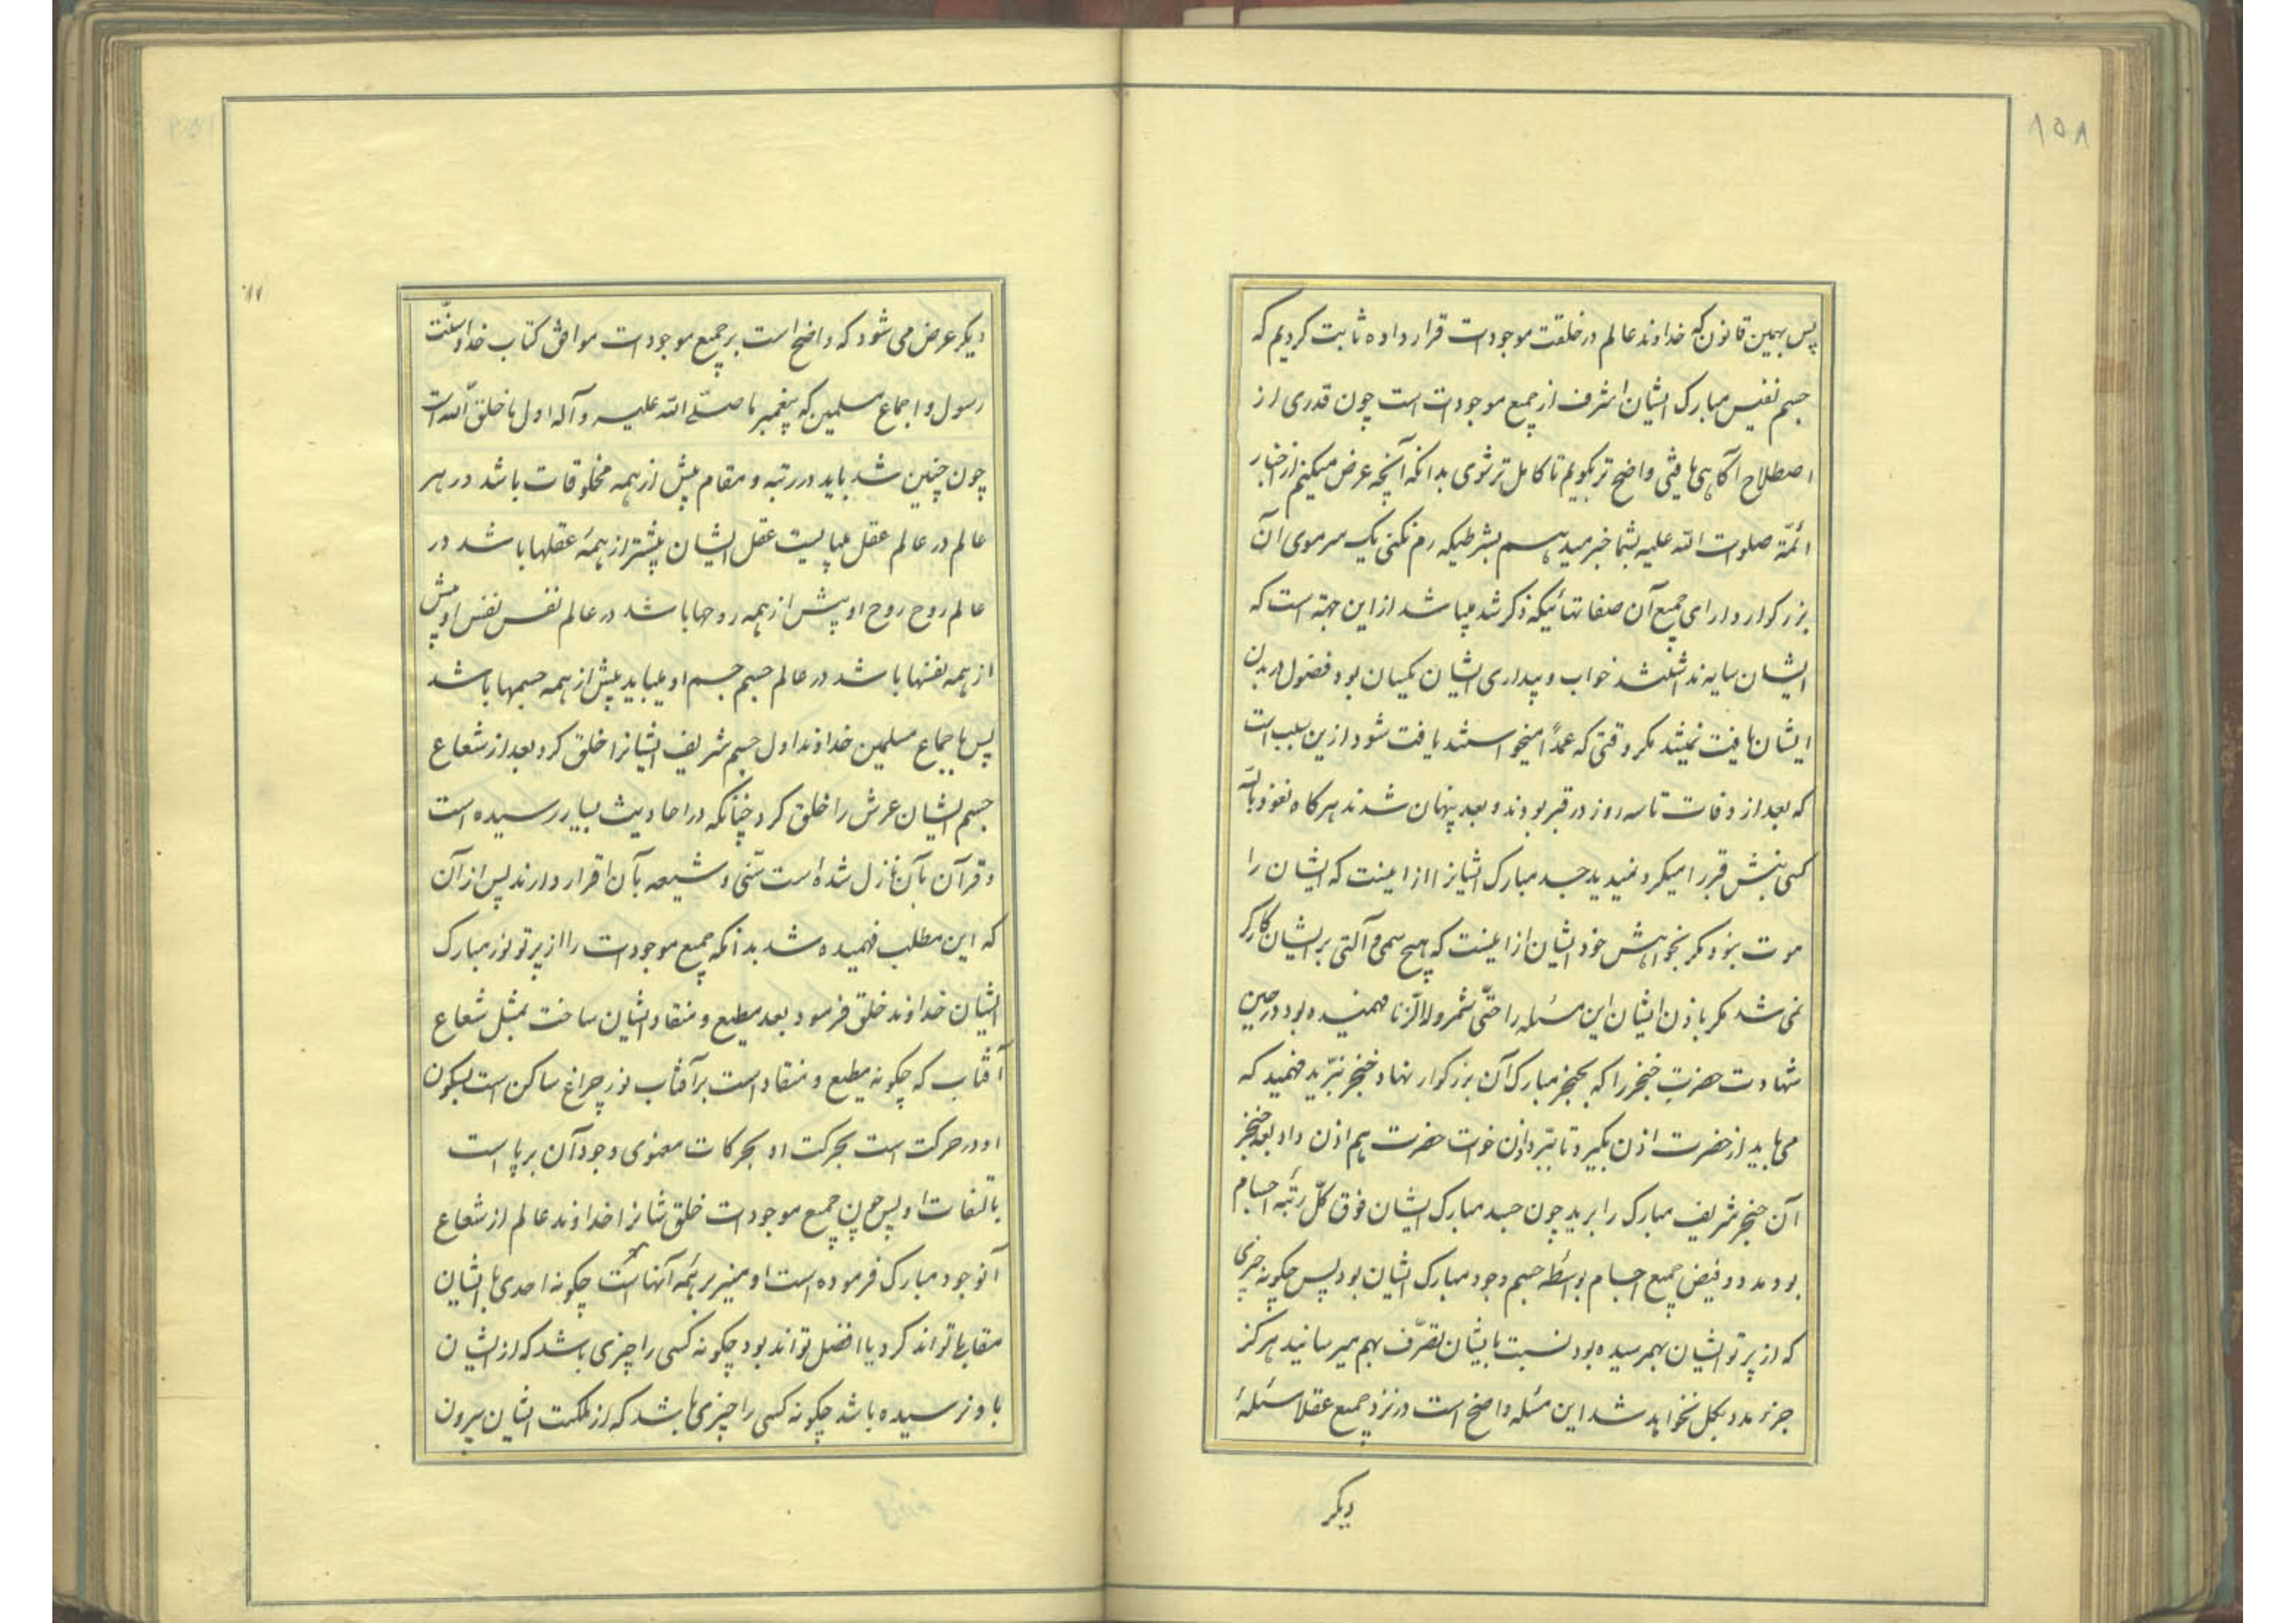 ۱۵۸
پس بهمین قانون که خداوند عالم در خلقت موجودات قرار داده ثابت کردیم که
جسم نفیس مبارک ایشان اشرف از جمیع موجودات است چون قدری از
اصطلاح آگاهی یافتی واضح تر بگویم تا کامل تر شوی بدانکه آنچه عرض میکنم از اخبار
ائمّه صلوات الله علیه بشما خبر میدهم بشرطیکه رم نکنی یک سر موی آن
بزرگوار دارای جمیع آن صفاتهائیکه ذکر شد میباشد از این جهة است که
ایشان سایه نداشتند خواب و بیداری ایشان یکسان بود فضول در بدن
ایشان یافت نمیشد مکر وقتی که عمداً میخواستند یافت شود ازین سبب است
که بعد از وفات تا سه روز در قبر بودند و بعد پنهان شدند هرکاه نعوذ بالله
کسی نبش قبر را میکرد نمیدید جسد مبارک ایشانرا از اینست که ایشان را
موت نبود مکر بخواهش خود ایشان از اینست که هیچ سمی و آلتی بر ایشان کارکر
نمی شد مکر باذن ایشان این مسئله را حتّی شمر ولدالزنا فهمیده بود در حین
شهادت حضرت خنجر را که بحنجر مبارک آن بزرکوار نهاد خنجر نبرّید فهمید که
می باید از حضرت اذن بکیرد تا ببرّد اذن خواست حضرت هم اذن داد بعد خنجر
آن حنجر شریف مبارک را برید چون جسد مبارک ایشان فوق کلّ رتبهٔ اجسام
بود مدد و فیض جمیع اجسام بواسطه جسم وجود مبارک ایشان بود پس چکونه چیزی
که از پرتو ایشان بهمرسیده بود نسبت بایشان تصرّف بهم میرسانید هرکز
جزء مدد بکل نخواهد شد این مسئله واضح است در نزد جمیع عقلا مسئلهٔ
دیکر
دیکر عرض می شود که واضح است بر جمیع موجودات موافق کتاب خدا و سنّت
رسول و اجماع مسلمین که پیغمبر ما صلّی الله علیه و آله اول ما خلق الله است
چون چنین شد باید در رتبه و مقام پیش از همه مخلوقات باشد در هر
عالم در عالم عقل میبایست عقل ایشان پیشتر از همهٔ عقلها باشد در
عالم روح روح او پیش از همه روحها باشد در عالم نفس نفس او پیش
از همه نفسها باشد در عالم جسم جسم او میباید پیش از همه جسمها باشد
پس باجماع مسلمین خداوند اول جسم شریف ایشانرا خلق کرد بعد از شعاع
جسم ایشان عرش را خلق کرد چنانکه در احادیث بسیار رسیده است
و قرآن بآن نازل شده است سنّی و شیعه بآن اقرار دارند پس از آن
که این مطلب فهمیده شد بدانکه جمیع موجودات را از پرتو نور مبارک
ایشان خداوند خلق فرمود بعد مطیع و منقاد ایشان ساخت بمثل شعاع
آفتاب که چکونه مطیع و منقاد است بر آفتاب نور چراغ ساکن است بسکون
او در حرکت است بحرکت او بحرکات معنوی وجود آن بر پا است
بالتفات او پس چون جمیع موجودات خلقشانرا خداوند عالم از شعاع
آنوجود مبارک فرموده است او منیر بر همهٔ آنها است چکونه احدی با ایشان
مقابله تواند کرد یا افضل تواند بود چکونه کسی را چیزی باشد که از ایشان
باو نرسیده باشد چکونه کسی را چیزی باشد که از ملکت ایشان بیرون